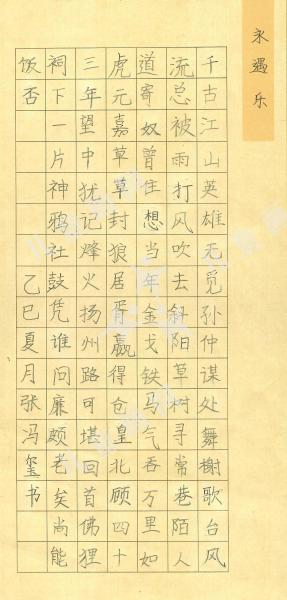 永遇乐
千古江山英雄无觅孙仲谋处舞榭歌台风
流总被雨打风吹去斜阳草树寻常巷陌人
道寄奴曾住想当年金戈铁马气吞万里如
虎元嘉草草封狼居胥赢得仓皇北顾四十
三年望中犹记烽火扬州路可堪回首佛狸
祠下一片神鸦社鼓凭谁问廉颇老矣尚能
饭否 乙巳夏月张冯玺书